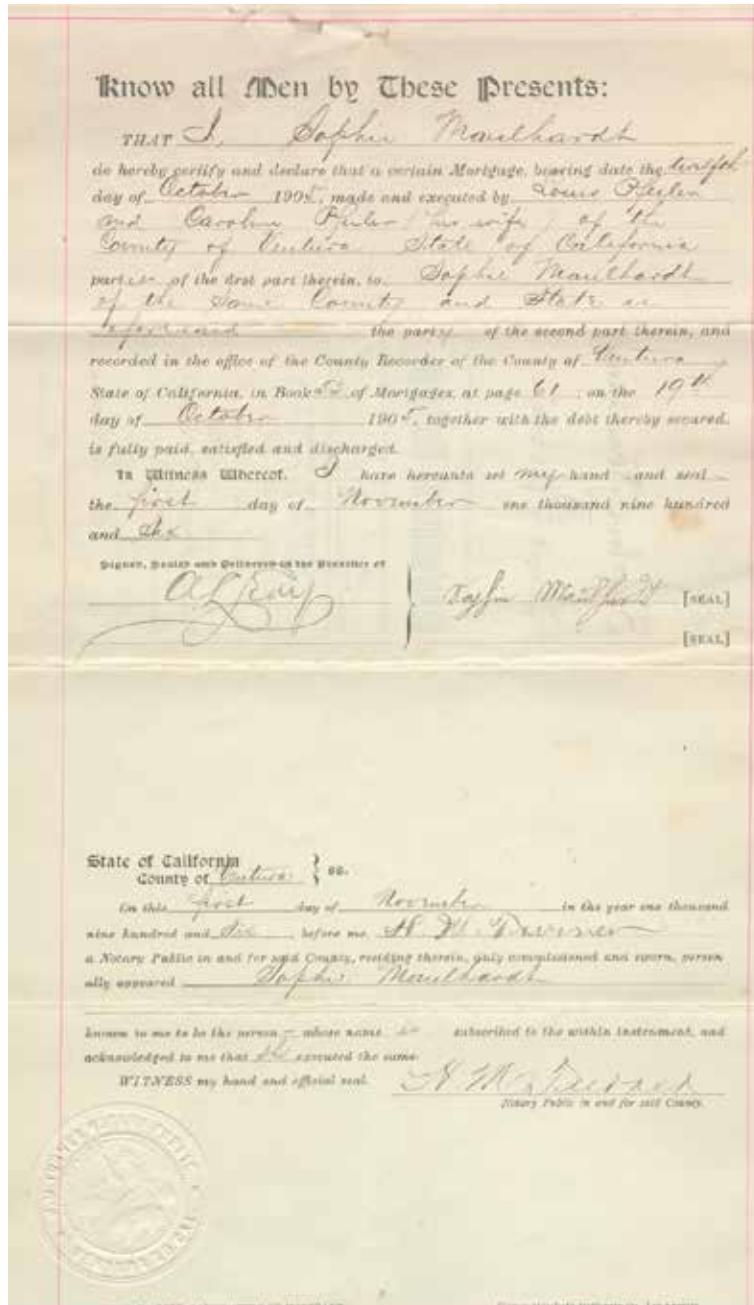 Know all Men by These Presents:
THAT I, Sophie Maulhardt
do hereby certify and declare that a certain Mortgage, bearing date the twelfth
day of October 1905, made and executed by Louis Pfeiler
and Caroline Pfeiler (his wife) of the
County of Ventura State of California
parties of the first part therein, to Sophie Maulhardt
of the Same County and State as
aforesaid the party of the second part therein, and
recorded in the office of the County Recorder of the County of Ventura
State of California, in Book of Mortgages, at page 61, on the 19th
day of October 1905, together with the debt thereby secured,
is fully paid, satisfied and discharged.
In Witness Whereof, I have hereunto set my hand and seal
the first day of November one thousand nine hundred
and Six
Signed, Sealed and Delivered in the Presence of
Sophie Maulhardt [SEAL]
[SEAL]
State of California
County of Ventura } ss.
On this first day of November in the year one thousand
nine hundred and Six before me, H. W.
a Notary Public in and for said County, residing therein, duly commissioned and sworn, person
ally appeared Sophie Maulhardt
known to me to be the person whose name is subscribed to the within instrument, and
acknowledged to me that she executed the same.
WITNESS my hand and official seal.
Notary Public in and for said County.